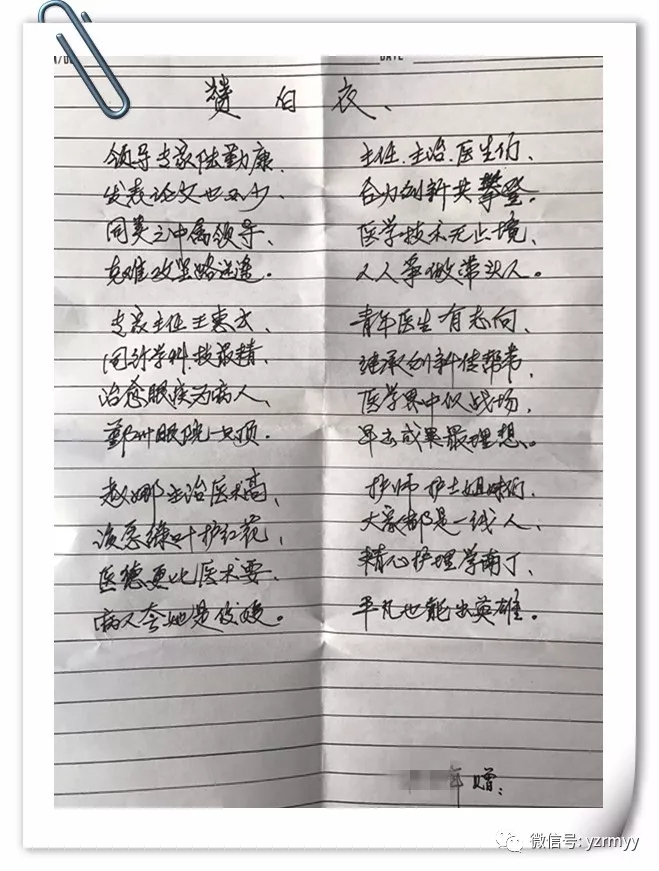 DATE
赞白衣、
领导专家陆勤康、
发表论文也不少、
同类之中属领导、
克难攻坚路遥遥。
专家主任王惠
同行学科技最精、
治愈眼疾为病人、
鄞州眼院一
赵娜主治医术高、
愿绿叶护红花、
医德更比医术要、
病人夸她是俊嫂。
主任、主治、医生们、
合力创新共攀登。
医学技术无止境、
人人争做带头人。
青年医生有志向、
继承创新传帮带、
医学界中似战场、
早出成果最理想。
护师护士姐妹们、
大家都是一线人、
精心护理学南丁、
平凡也能出英雄。
赠:
微信号: yzrmyy